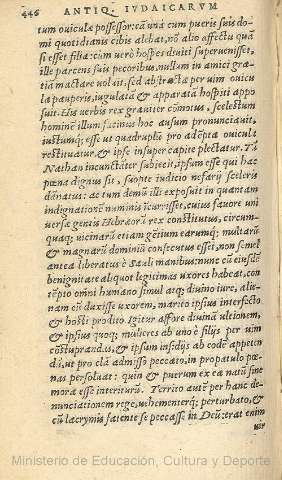 446 ANTIQ. IVDAICARVM
tum ouiculæ possessor. eã unà cum pueris suis do-
mi quotidianis cibis alebat, nõ alio affectu quã
si esset filia: cum uerò hospes diuiti superuenisset,
ille parcens suis pecoribus, nullum in amici gra-
tiã mactare uoluit, sed abstracta per uim ouicu
la pauperis, iugulatã & apparatã hospiti appo
suit. His uerbis rex grauiter cõmotus, scelestum
hominẽ illum facinus hoc ausum pronunciauit,
iustumq; esse ut quadruplũ pro adepta ouicula
restituatur, & ipse insuper capite plectatur. Tũ
Nathan incunctãter subiecit, ipsum esse qui hac
pœna dignus sit, suopte iudicio nefarij sceleris
dãnatus: ac tum demũ illi exposuit in quantam
indignationẽ numinis icurrisset, cuius fauore uni
uersæ gentis Hebræorũ rex constitutus, circum-
quaq; uicinarũ etiam gẽtium earumq; multarũ
& magnarũ dominiũ consecutus esset, non semel
antea liberatus è Sauli manibus: nunc cũ eiusdẽ
benignitate aliquot legitimas uxores habeat, con
tẽpto omni humano simul atq; diuino iure, alie-
nam eũ duxisse uxorem, marito ipsius interfecto
& hosti prodito. Igitur affore diuinã ultionem,
& ipsius quoq; mulieres ab uno è filijs per uim
cõstuprandas, & ipsum insidijs ab eodẽ appeten
dũ, ut pro clã admisso peccato, in propatulo pœ
nas persoluat: quin & puerum ex ea natũ sine
mora esse interiturũ. Territo autẽ per hanc de-
nunciationem rege, uehementerq; perturbato, &
cũ lacrymis fatente se peccasse in Deũ: erat enim
uir
Ministerio de Educación, Cultura y Deporte